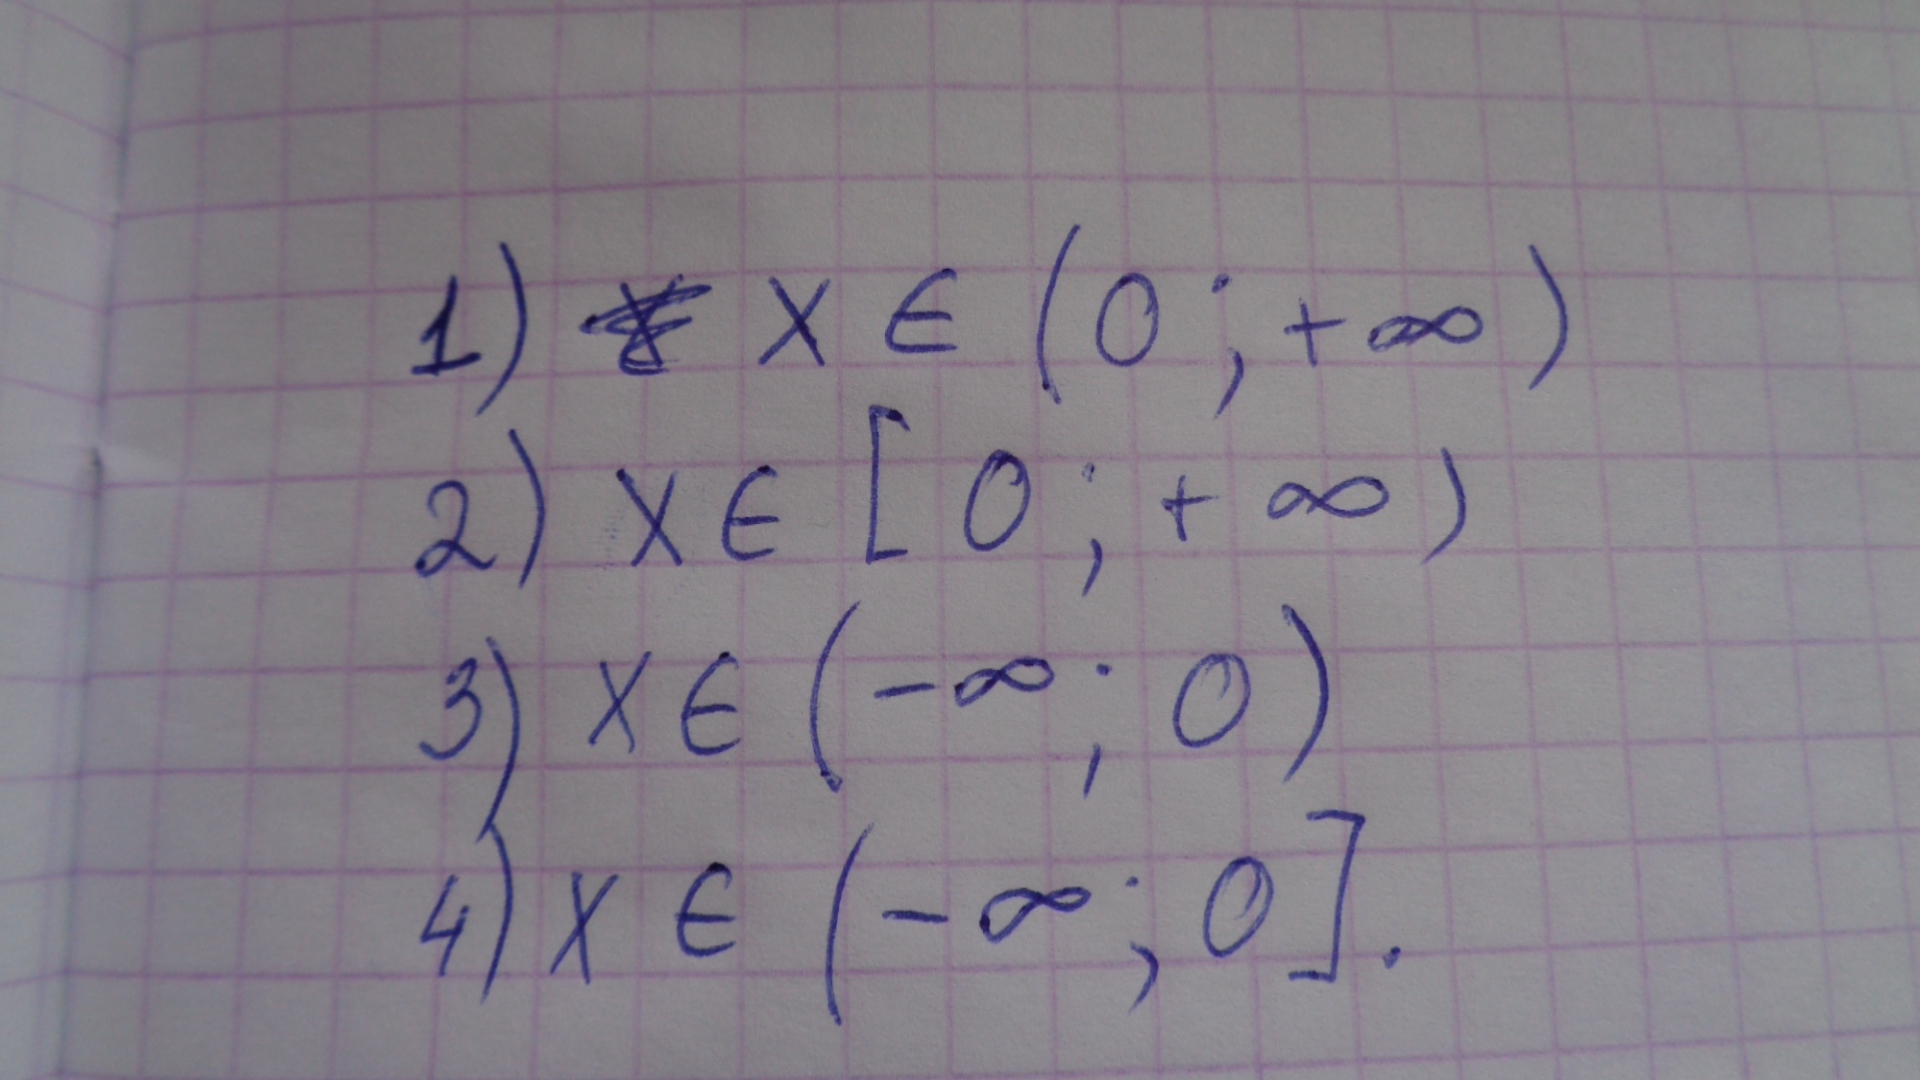 1) x ∈ (0; +∞)
2) x ∈ [0; +∞)
3) x ∈ (-∞; 0)
4) x ∈ (-∞; 0].